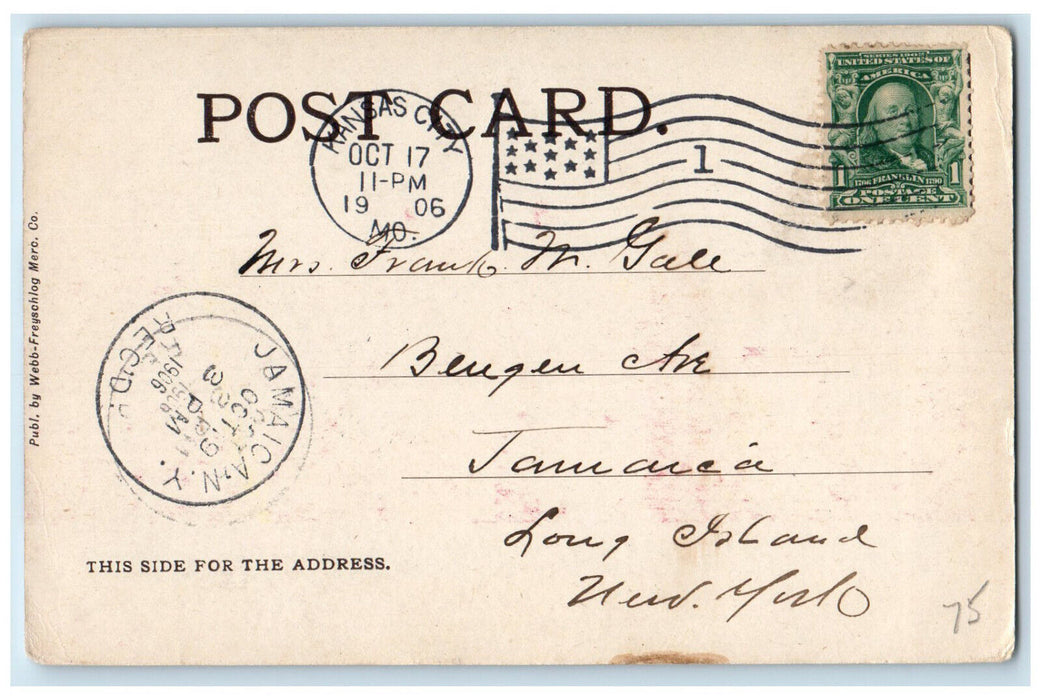 POST CARD.
KANSAS CITY
OCT 17
11-PM
19 06
MO.
1
SERIES 1902
UNITED STATES OF
AMERICA
1706 FRANKLIN 1790
1 POSTAGE 1
ONE CENT
Mrs. Frank M. Gale
Bergen Ave
Jamaica
Long Island
New York
Publ. by Webb-Freyschlag Merc. Co.
JAMAICA, N.Y.
REC'D.
OCT 19
1906
THIS SIDE FOR THE ADDRESS.
75